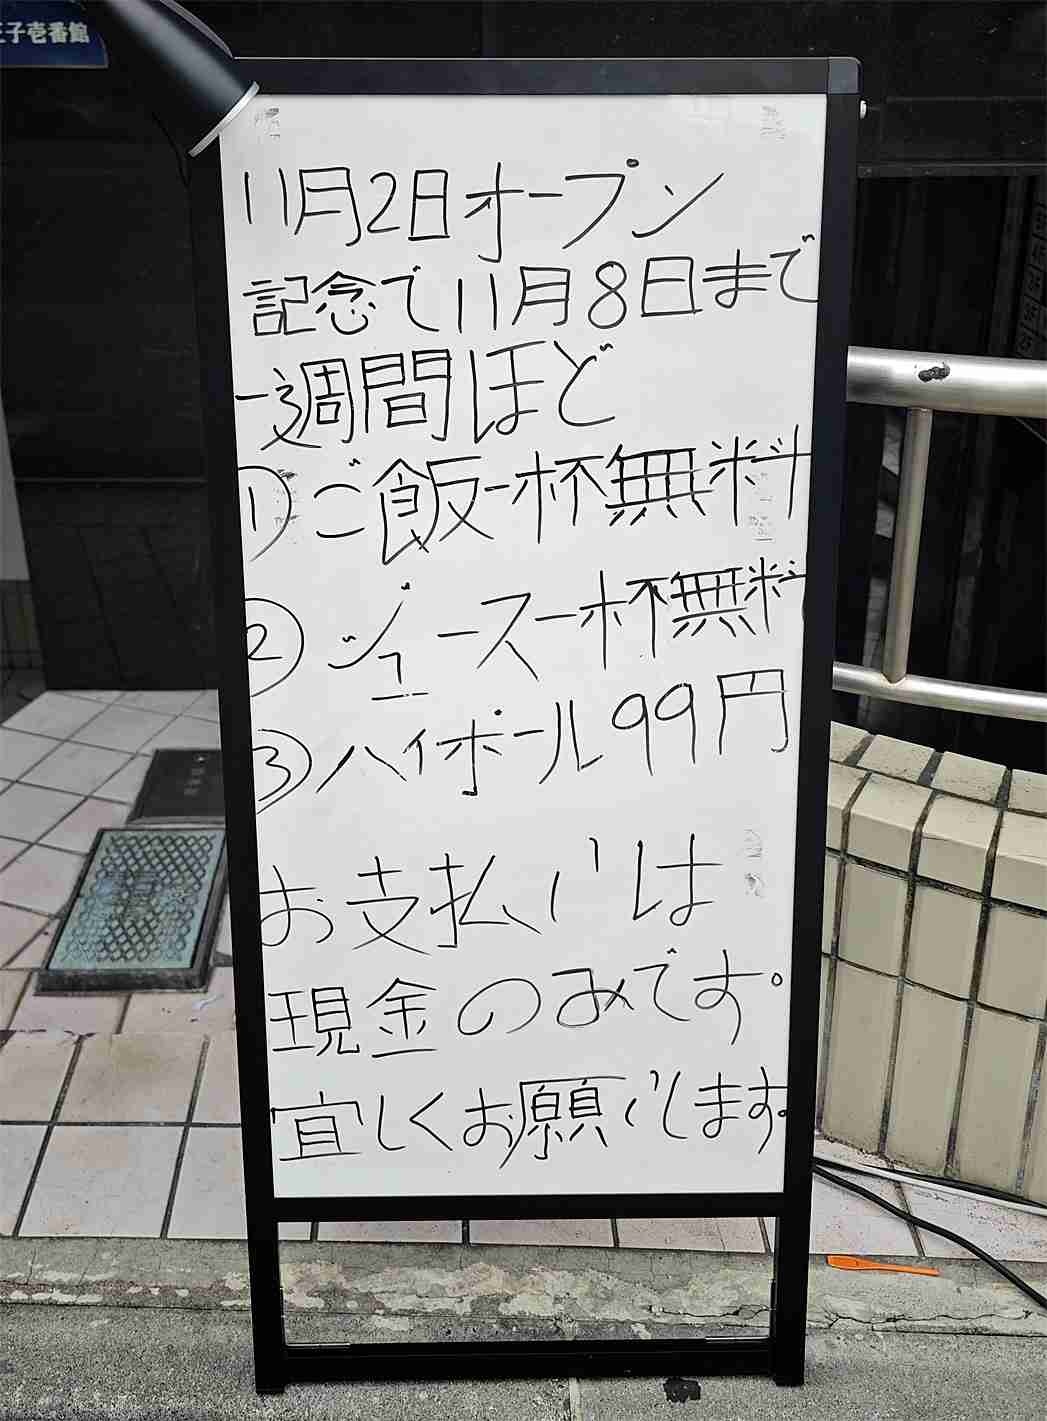 王子壱番館
11月2日オープン
記念で11月8日まで
一週間ほど
①ご飯一杯無料
②ジュース一杯無料
③ハイボール99円
お支払いは
現金のみです。
宜しくお願いします。